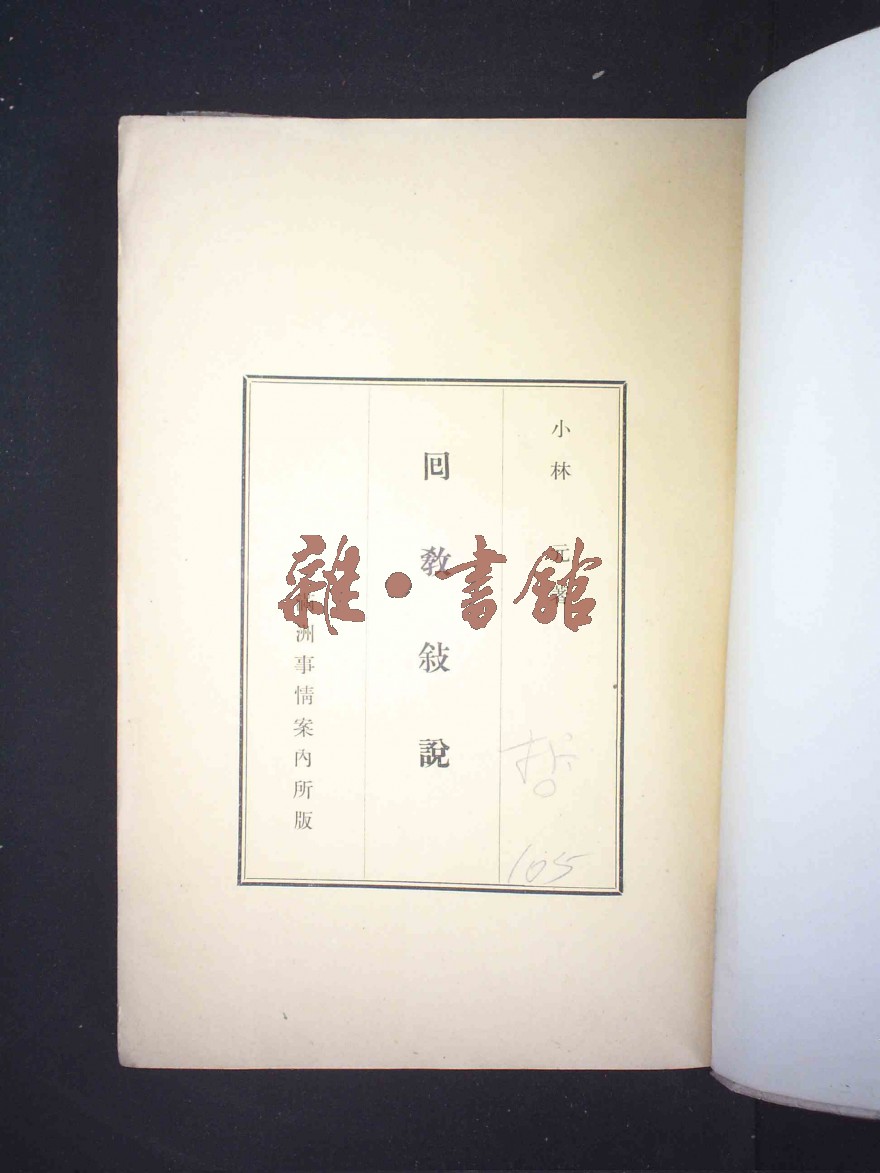 小林元著
回教敍說
滿洲事情案內所版
雜·書館
哲
105